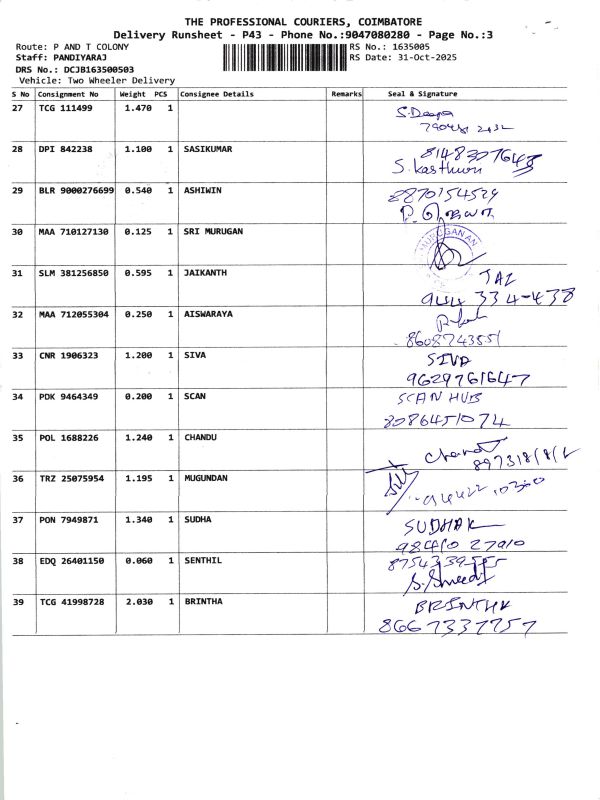 THE PROFESSIONAL COURIERS, COIMBATORE
Delivery Runsheet - P43 - Phone No.:9047080280 - Page No.:3
Route: P AND T COLONY RS No.: 1635005
Staff: PANDIYARAJ RS Date: 31-Oct-2025
DRS No.: DCJB163500503
Vehicle: Two Wheeler Delivery
S No Consignment No Weight PCS Consignee Details Remarks Seal & Signature
27 TCG 111499 1.470 1 S.Deepa
28 DPI 842238 1.100 1 SASIKUMAR 8148307643
S.kasthuri
29 BLR 9000276699 0.540 1 ASHIWIN 8870154529
30 MAA 710127130 0.125 1 SRI MURUGAN
31 SLM 381256850 0.595 1 JAIKANTH JAI
944 334-438
32 MAA 712055304 0.250 1 AISWARAYA
8608743551
33 CNR 1906323 1.200 1 SIVA SIVA
9629761647
34 PDK 9464349 0.200 1 SCAN SCAN HUB
8086451074
35 POL 1688226 1.240 1 CHANDU
36 TRZ 25075954 1.195 1 MUGUNDAN
37 PON 7949871 1.340 1 SUDHA SUDHAK
98410 27010
38 EDQ 26401150 0.060 1 SENTHIL
39 TCG 41998728 2.030 1 BRINTHA BRINTHA
8667337757